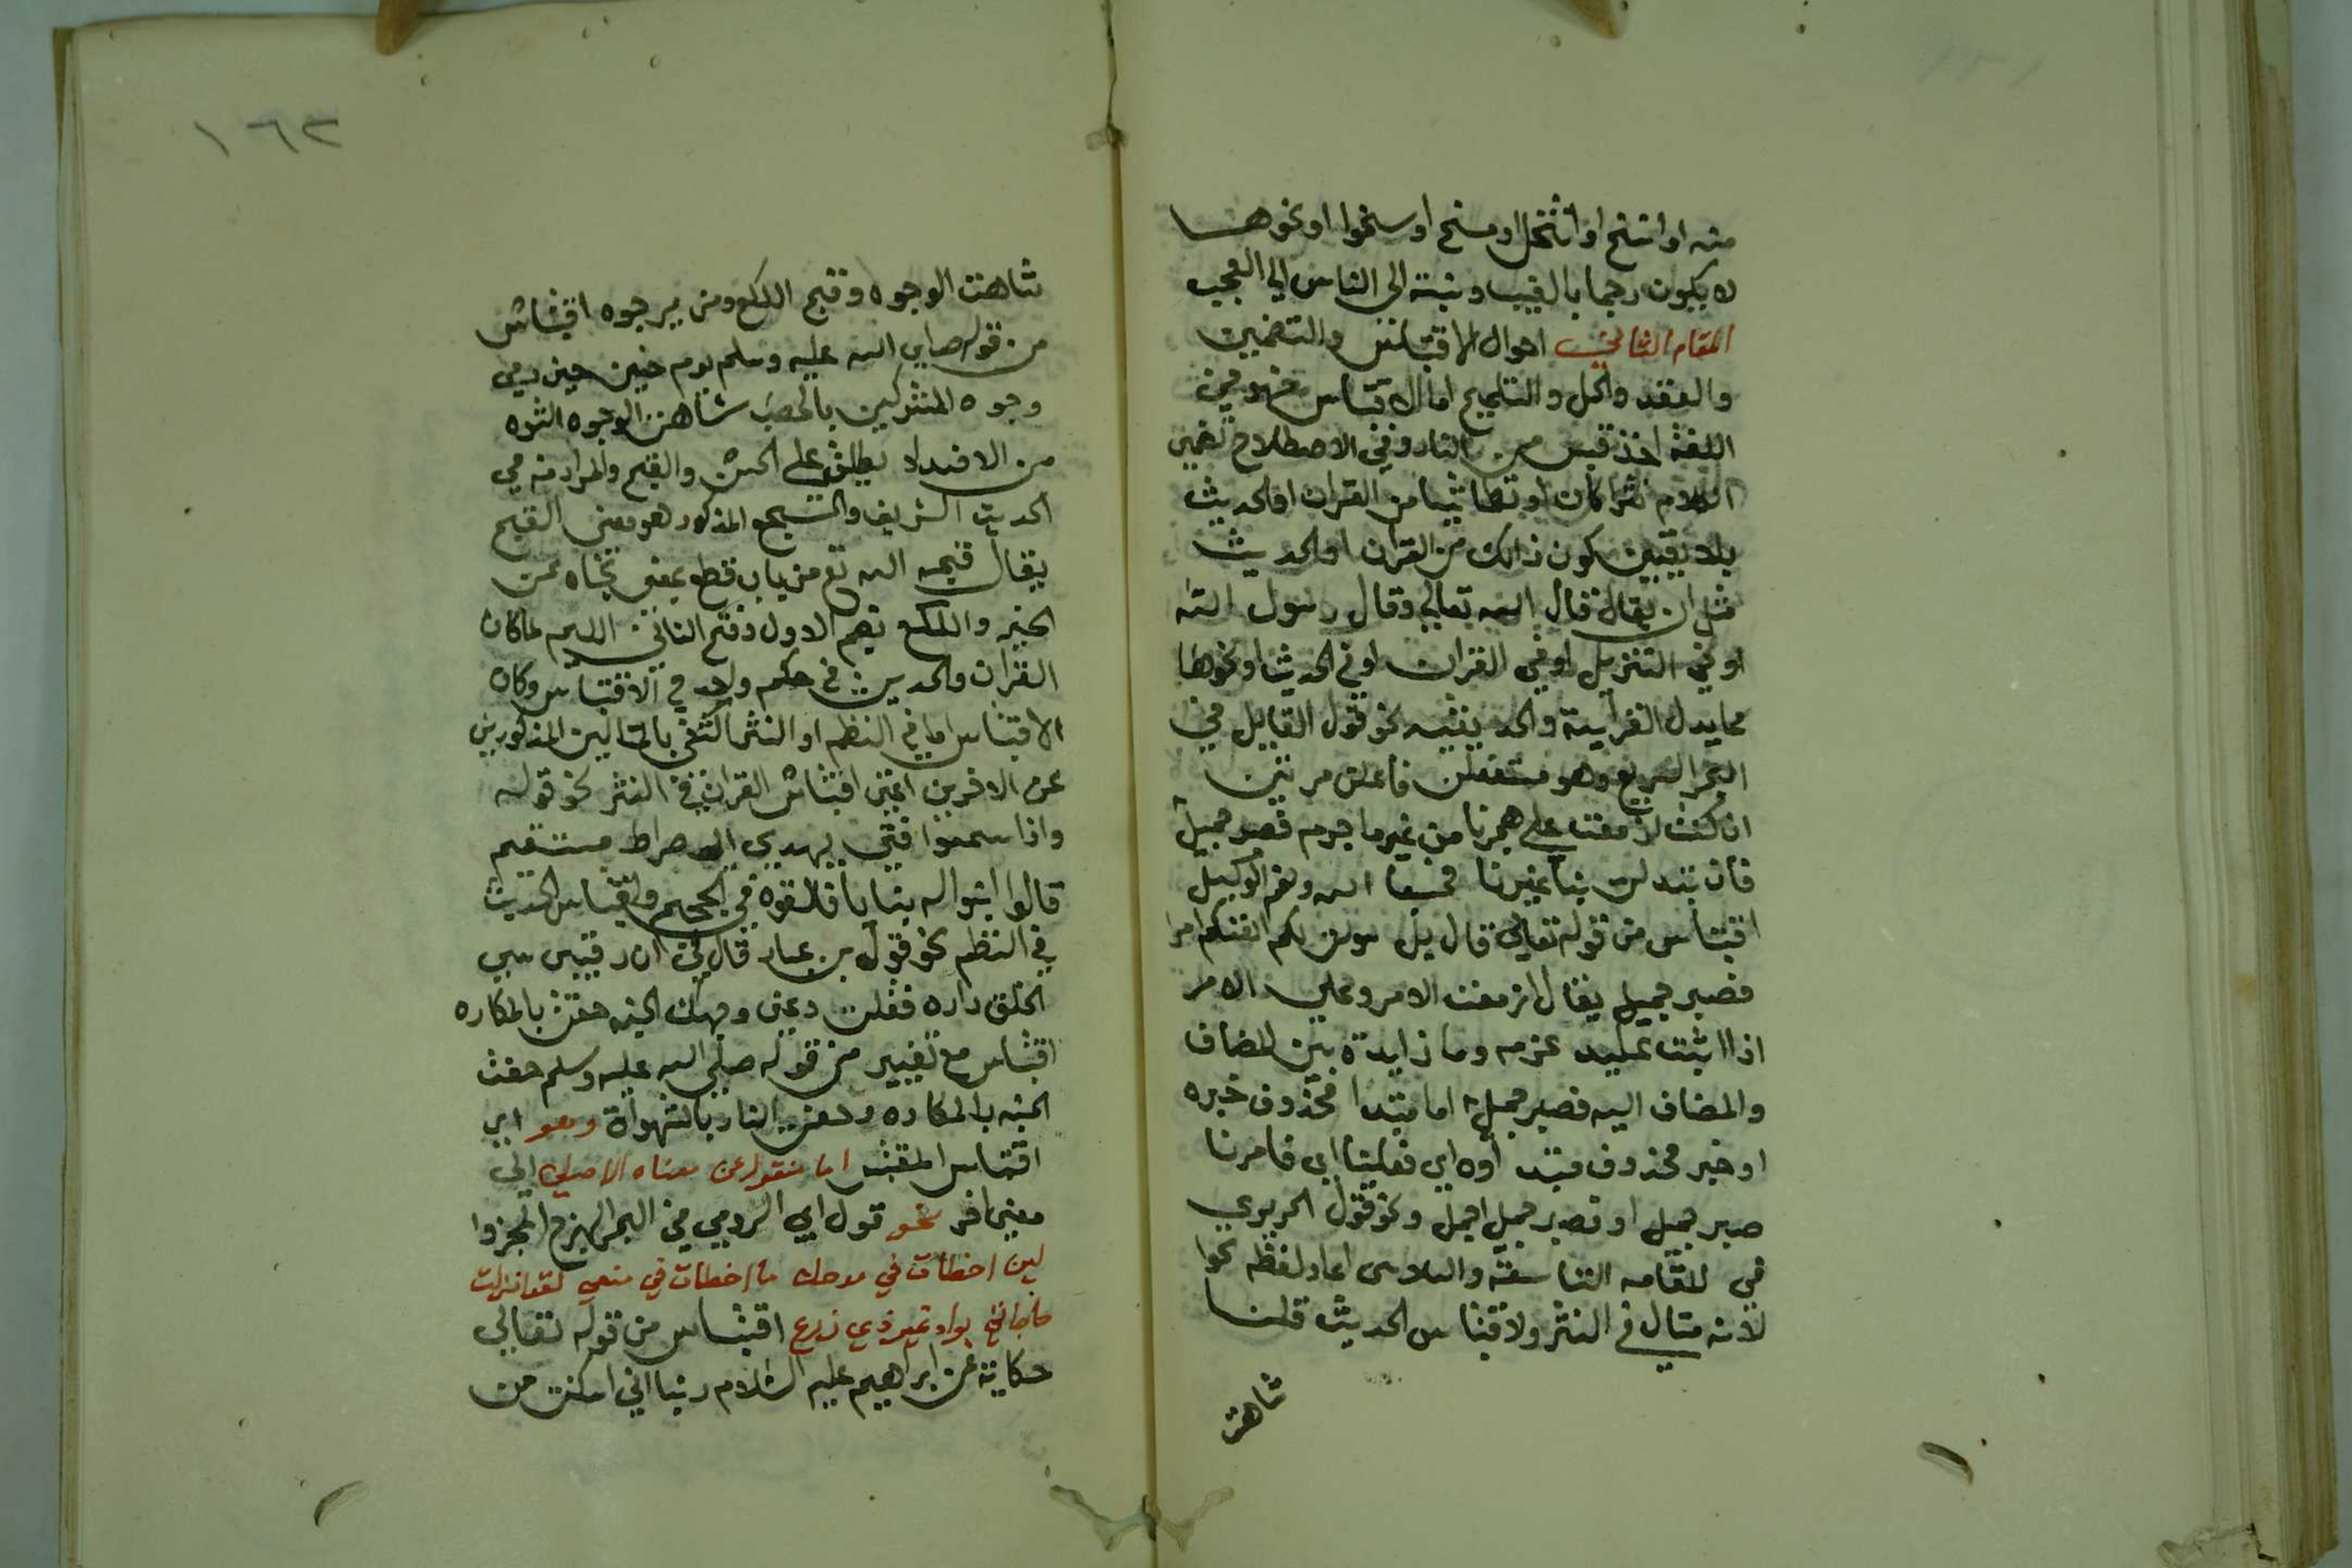 منه او انتسخ او انتحل او مسخ او سلخوا او نحوها
لا يكون رجما بالغيب ونسبة الى الناس الي العجب
المقام الثاني احوال الاقتباس والتضمين
والعقد والحل والتلميح اما الاقتباس فهو في
اللغة اخذ قبس من النار وفي الاصطلاح تضمين
الكلام نثرا كان او نظما شيا من القران او الحديث
بلا تعيين كون ذالك من القران او الحديث
مثل ان يقال قال الله تعالي وقال رسول الله
او في التنزيل او في القران او في الحديث او نحوها
مما يدل القرآنية والحديثيه نحو قول القايل في
البحر السريع وهو مستفعلن فاعلن مرتين
ان كنت ازمعت علي هجرنا من غير ما جرم فصبر جميل
فان تبدلت بنا غيرنا فحسبنا الله ونعم الوكيل
اقتباس من قوله تعالي قال بل سولت لكم انفسكم امرا
فصبر جميل يقال ازمعت الامر وعلي الامر
اذا اثبت عليه عزمه وما زايدة بين المضاف
والمضاف اليه فصبر جميل اما مبتدا محذوف خبره
او خبر محذوف مبتداوه اي فعلينا اي فامرنا
صبر جميل او فصبر جميل اجمل ونحو قول الحريري
في المقامه التاسعة والثلاثين اعاد لفظه نحوا
لانه مثال في النثر ولاقتباس الحديث قلنا
شاهت
١٦٣
شاهت الوجوه وقبح اللكع ومن يرجوه اقتباس
من قوله صلي الله عليه وسلم يوم حنين حين رمي
وجوه المشركين بالحصب شاهت الوجوه الشوه
من الاضداد يطلق علي الحسن والقبح والمراد منه في
الحديث الشريف والسجع المذكور هو معني القبح
يقال قبحه الله تع من باب قطع بمعني نحاه عن
الخير واللكع بضم الاول وفتح الثاني اللئيم لما كان
القران والحديث في حكم واحد في الاقتباس وكان
الاقتباس اما في النظم او النثر اكتفي بالمثالين المذكورين
عن الاخرين اعني اقتباس القران في النثر نحو قوله
واذا سمعوا فتي يهدي الي صراط مستقيم
قالوا ابنوا له بنيانا فالقوه في الجحيم واقتباس الحديث
في النظم نحو قول بن عباد قال لي ان رقيبي سيي
الخلق داره فقلت دعني وجهك الجنه حفت بالمكاره
اقتباس مع تغيير من قوله صلي الله عليه وسلم حفت
الجنه بالمكاره وحفت النار بالشهواة وهو اي
اقتباس المقتبس اما منقول عن معناه الاصلي الي
معني اخر نحو قول ابي الرومي في البحر الهزج المجزوا
لين اخطات في مدحك ما اخطات في منعي لقد انزلت
حاجاتي بواد غير ذي زرع اقتباس من قوله تعالي
حكاية عن ابراهيم عليه السلام ربنا اني اسكنت من